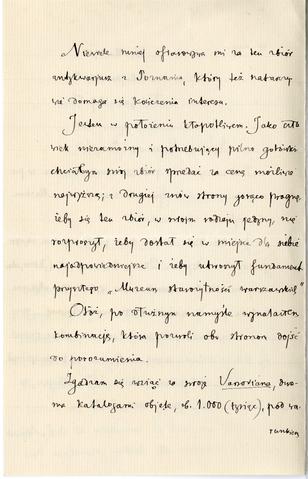 „Niewiele mniej ofiarowywa mi za ten zbiór
antykwarjusz z Poznania, który też natarczy-
wie domaga się kończenia interesu.
Jestem w położeniu kłopotliwem. Jako czło-
wiek niezamożny i potrzebujący pilno gotówki
chciałbym swój zbiór sprzedać za cenę możliwie
najwyższą; z drugiej znów strony gorąco pragnę,
żeby się ten zbiór, w swoim rodzaju jedyny, nie
rozproszył, żeby dostał się w miejsce dla siebie
najodpowiedniejsze i żeby utworzył fundament
przyszłego „Muzeum starożytności warszawskich".
Otóż, po dłuższym namyśle wynalazłem
kombinację, która pozwoli obu stronom dojść
do porozumienia.
Zgadzam się wziąć za swoje Varsoviana, dwo-
ma katalogami objęte, rb. 1.000 (tysiąc), pod wa-
runkiem